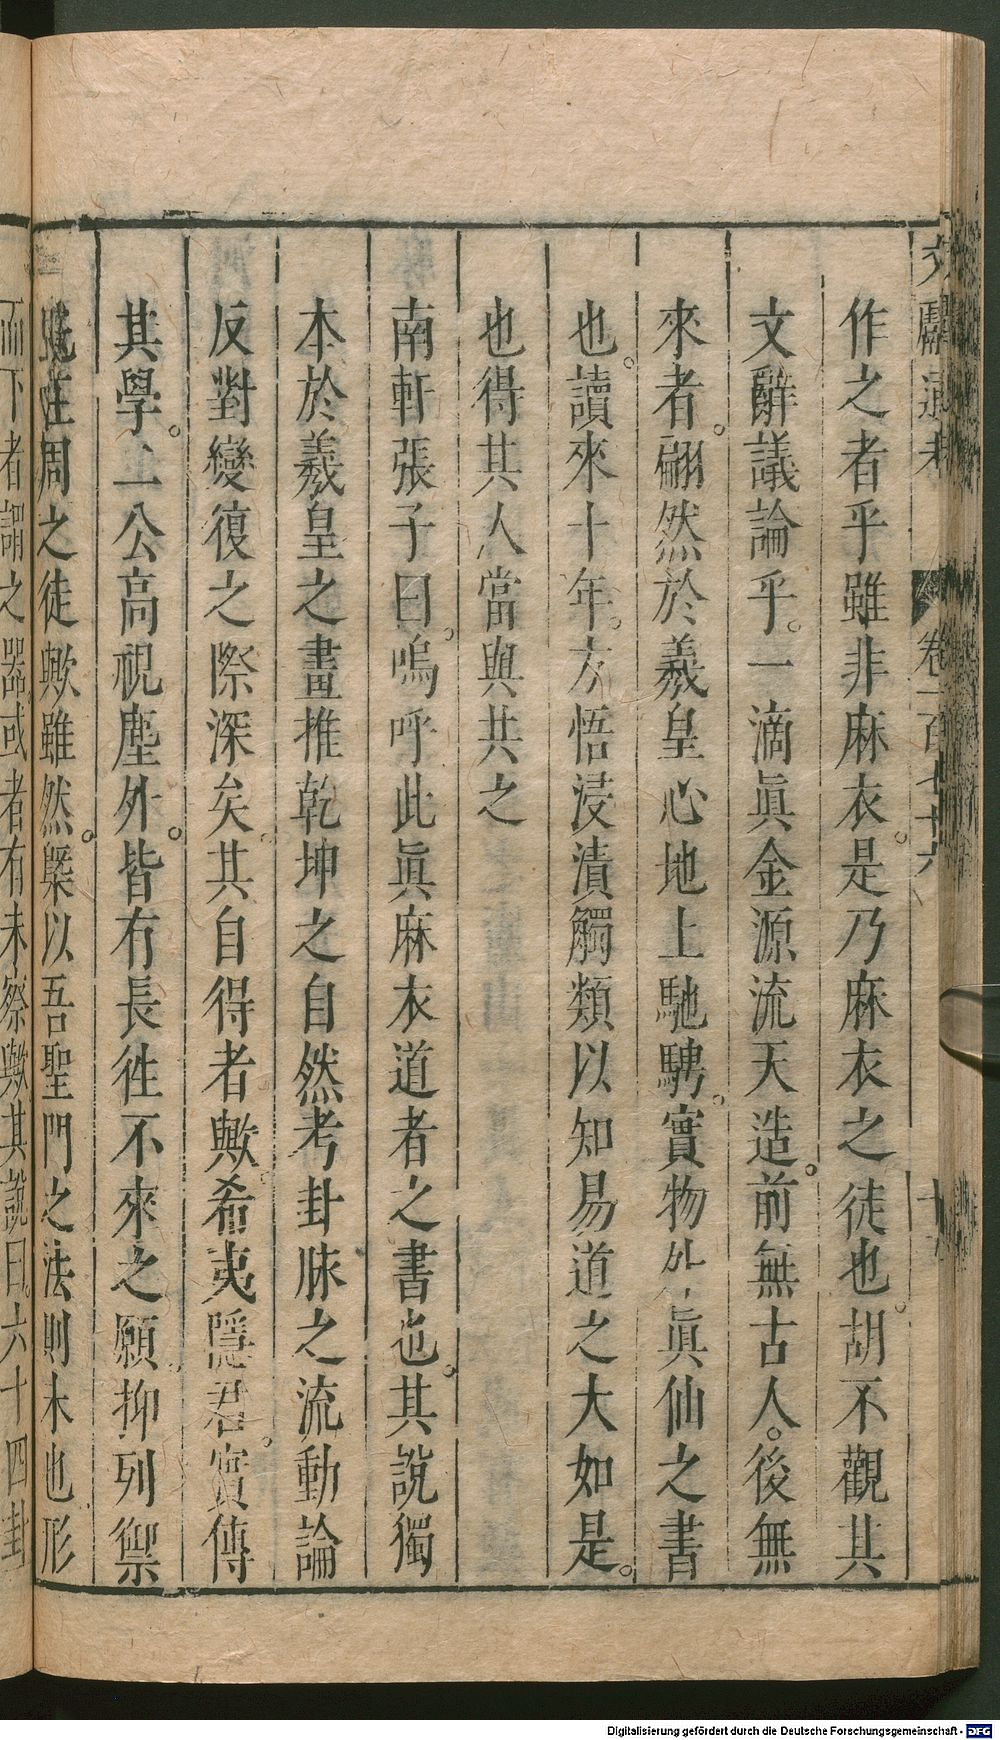 文獻通考 卷一百七十六 十
作之者乎雖非麻衣。是乃麻衣之徒也。胡不觀其
文辭議論乎。一滴眞金源流天造。前無古人。後無
來者。翩然於羲皇心地上馳騁。實物外眞仙之書
也。讀來十年。方悟浸漬觸類以知易道之大如是。
也得其人當與共之
南軒張子曰。嗚呼此眞麻衣道者之書也。其說獨
本於羲皇之畫推乾坤之自然考卦脉之流動論
反對變復之際深矣。其自得者歟。希夷隱君。實傳
其學。二公高視塵外。皆有長徃不來之願。抑列禦
寇莊周之徒歟雖然。槩以吾聖門之法則未也形
而下者謂之器或者有未察歟其說曰。六十四卦
Digitalisierung gefördert durch die Deutsche Forschungsgemeinschaft - DFG